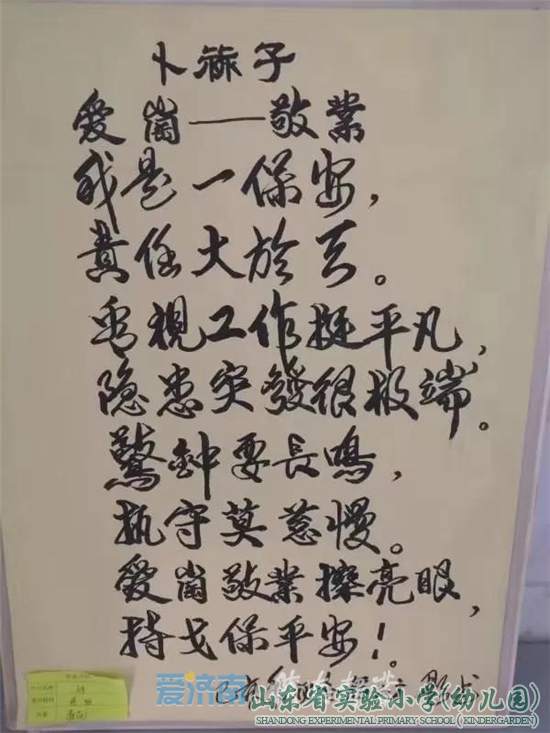 卜祘子
愛崗——敬業
我是一保安，
責任大於天。
忽視工作挺平凡，
隐患突發很极端。
驚鈡要長鳴，
执守莫怠慢。
愛崗敬業擦亮眼，
持戈保平安！
爱济南
山东省实验小学(幼儿园)
SHANDONG EXPERIMENTAL PRIMARY SCHOOL ( KINDERGARDEN)